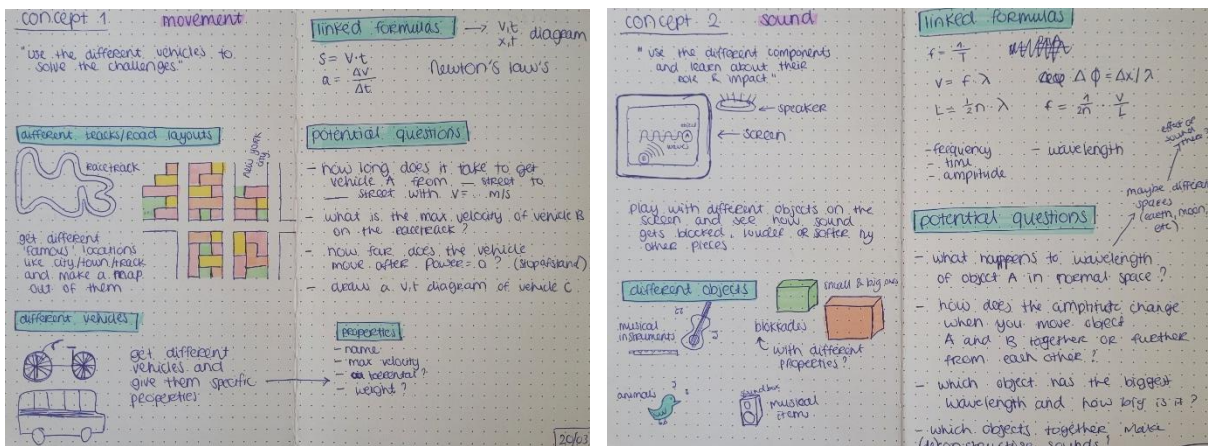 concept 1
movement
"use the different vehicles to
solve the challenges"
different tracks/road layouts
racetrack
New York
city
get different
'famous' locations
like city/town/track
and make a map
out of them
different vehicles
get different
vehicles and
give them specific
properties
linked formulas → v,t diagram
x,t
S = V·t
a = ΔV/Δt
Newton's law's
potential questions
- how long does it take to get
vehicle A from __ street to
__ street with V= .. m/s
- what is the max velocity of vehicle B
on the racetrack?
- how far does the vehicle
move after power = 0? (stopafstand)
- draw a v,t diagram of vehicle C
properties
- name
- max velocity
- berental?
- weight?
20/03
concept 2
sound
"use the different components
and learn about their
role & impact"
← speaker
← screen
waves
play with different objects on the
screen and see how sound
gets blocked, louder or softer by
other pieces
different objects
small & big ones
musical
instruments
blokkades
with different
properties?
animals
soundbox
musical
item
linked formulas
f = 1/T
V = f·λ
Δφ = Δx/λ
L = ½n·λ
f = 1/2n · V/L
- ferquency
- time
- amplitude
- wavelength
effect of
sound
there?
maybe different
spaces
(earth, moon,
etc)
potential questions
- what happens to wavelength
of object A in normal space?
- how does the amplitute change
when you move object
A and B together or further
from each other?
- which object has the biggest
wavelength and how big is it?
- which objects together make
sounds?